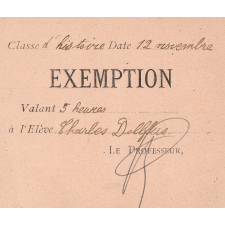 Classe d'histoire Date 12 novembre
EXEMPTION
Valant 5 heures
à l'Elève Charles Dollfus
LE PROFESSEUR,